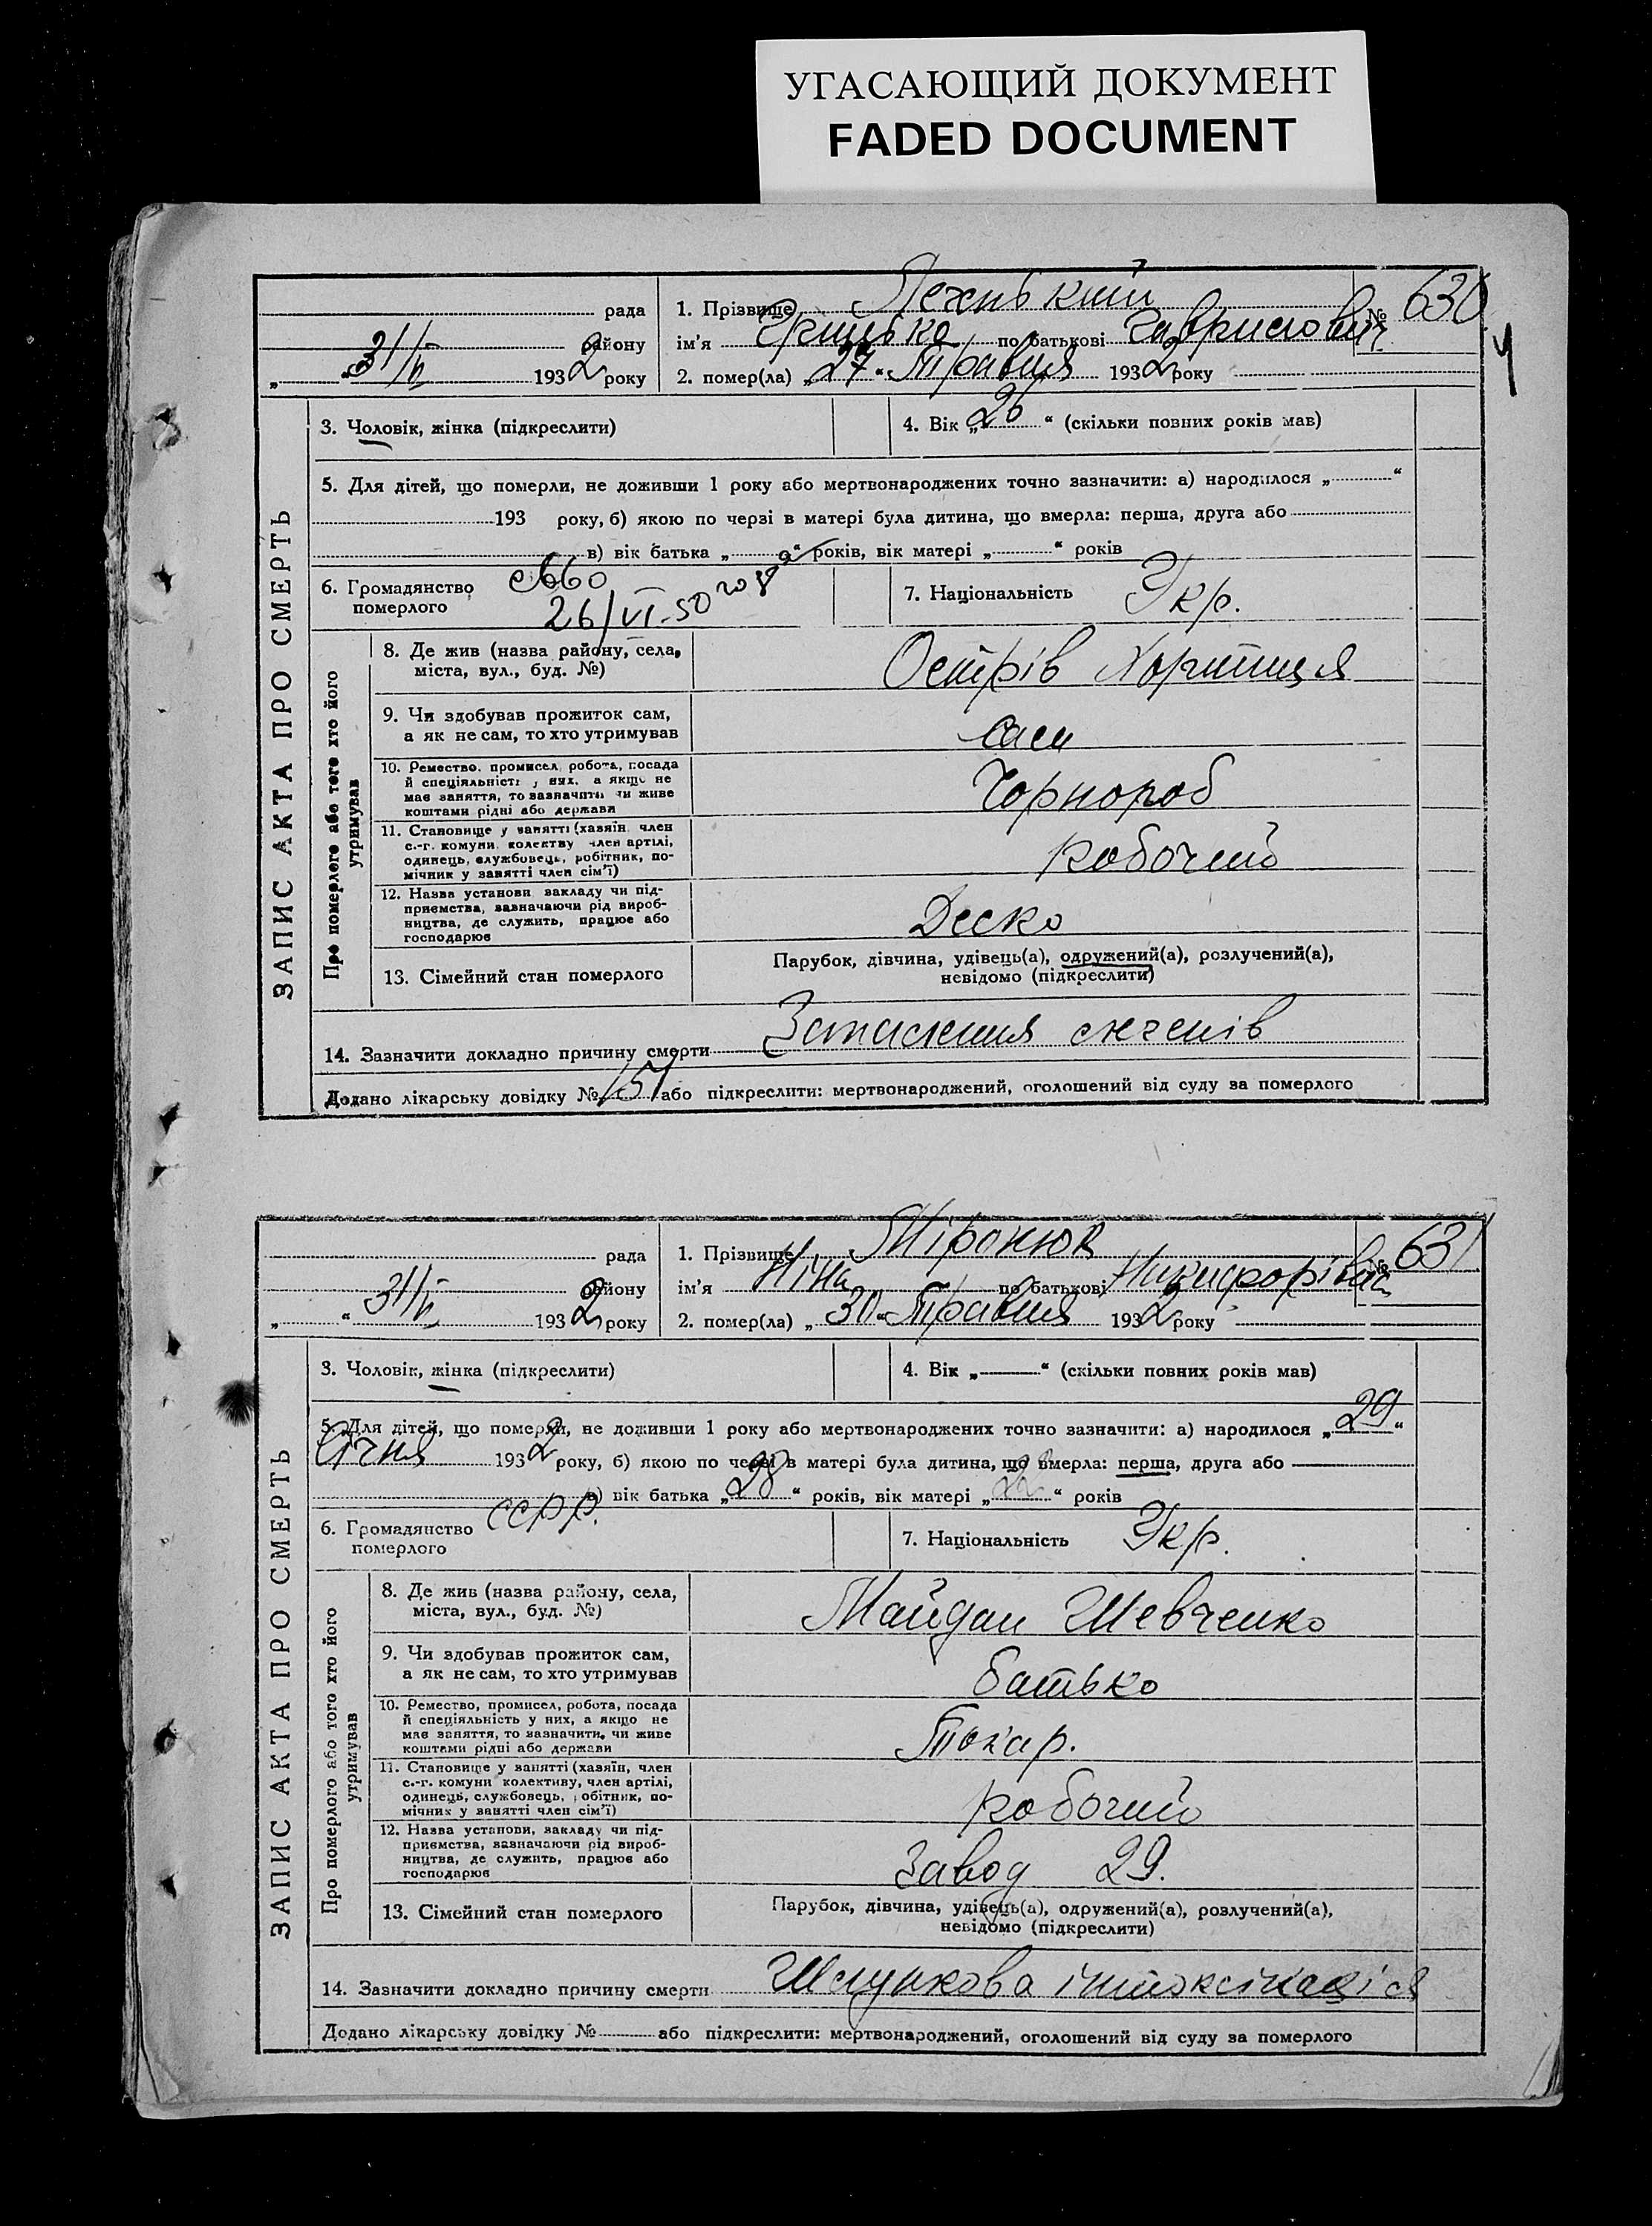 УГАСАЮЩИЙ ДОКУМЕНТ
FADED DOCUMENT
ЗАПИС АКТА ПРО СМЕРТЬ
рада
району
„ “ 31/V 1932 року
1. Прізвище № 630
ім'я Грицько по батькові Гаврилович
2. помер(ла) „27“ Травня 1932 року
3. Чоловік, жінка (підкреслити)
4. Вік „26“ (скільки повних років мав)
5. Для дітей, що померли, не доживши 1 року або мертвонароджених точно зазначити: а) народилося „ “
193 року, б) якою по черзі в матері була дитина, що вмерла: перша, друга або
в) вік батька „ “ років, вік матері „ “ років
6. Громадянство
померлого
26/VI-50
7. Національність Укр.
Про померлого або того хто його
утримував
8. Де жив (назва району, села,
міста, вул., буд. №)
Острів Хортиця
9. Чи здобував прожиток сам,
а як не сам, то хто утримував
сам
10. Ремество, промисел, робота, посада
й спеціяльність у них, а якщо не
має заняття, то зазначити чи живе
коштами рідні або держави
Чорнороб
11. Становище у занятті (хазяїн, член
с.-г. комуни, колективу член артілі,
одинець, службовець, робітник, по-
мічник у занятті член сім'ї)
робочий
12. Назва установи закладу чи під-
приємства, зазначаючи рід вироб-
ництва, де служить, працює або
господарює
13. Сімейний стан померлого
Парубок, дівчина, удівець(а), одружений(а), розлучений(а),
невідомо (підкреслити)
14. Зазначити докладно причину смерти Запалення легенів
Додано лікарську довідку № 151 або підкреслити: мертвонароджений, оголошений від суду за померлого
ЗАПИС АКТА ПРО СМЕРТЬ
рада
району
„ “ 31/V 1932 року
1. Прізвище Міронюк № 631
ім'я Ніна по батькові Никифорівна
2. помер(ла) „30“ Травня 1932 року
3. Чоловік, жінка (підкреслити)
4. Вік „—“ (скільки повних років мав)
5. Для дітей, що померли, не доживши 1 року або мертвонароджених точно зазначити: а) народилося „29“
Січня 1932 року, б) якою по черзі в матері була дитина, що вмерла: перша, друга або —
в) вік батька „28“ років, вік матері „22“ років
6. Громадянство
померлого
СССР.
7. Національність Укр.
Про померлого або того хто його
утримував
8. Де жив (назва району, села,
міста, вул., буд. №)
Майдан Шевченко
9. Чи здобував прожиток сам,
а як не сам, то хто утримував
батько
10. Ремество, промисел, робота, посада
й спеціяльність у них, а якщо не
має заняття, то зазначити, чи живе
коштами рідні або держави
Токар.
11. Становище у занятті (хазяїн, член
с.-г. комуни колективу, член артілі,
одинець, службовець, робітник, по-
мічник у занятті член сім'ї)
робочий
12. Назва установи, закладу чи під-
приємства, зазначаючи рід вироб-
ництва, де служить, працює або
господарює
завод 29.
13. Сімейний стан померлого
Парубок, дівчина, удівець(а), одружений(а), розлучений(а),
невідомо (підкреслити)
14. Зазначити докладно причину смерти Шлункова інтоксікація
Додано лікарську довідку № або підкреслити: мертвонароджений, оголошений від суду за померлого